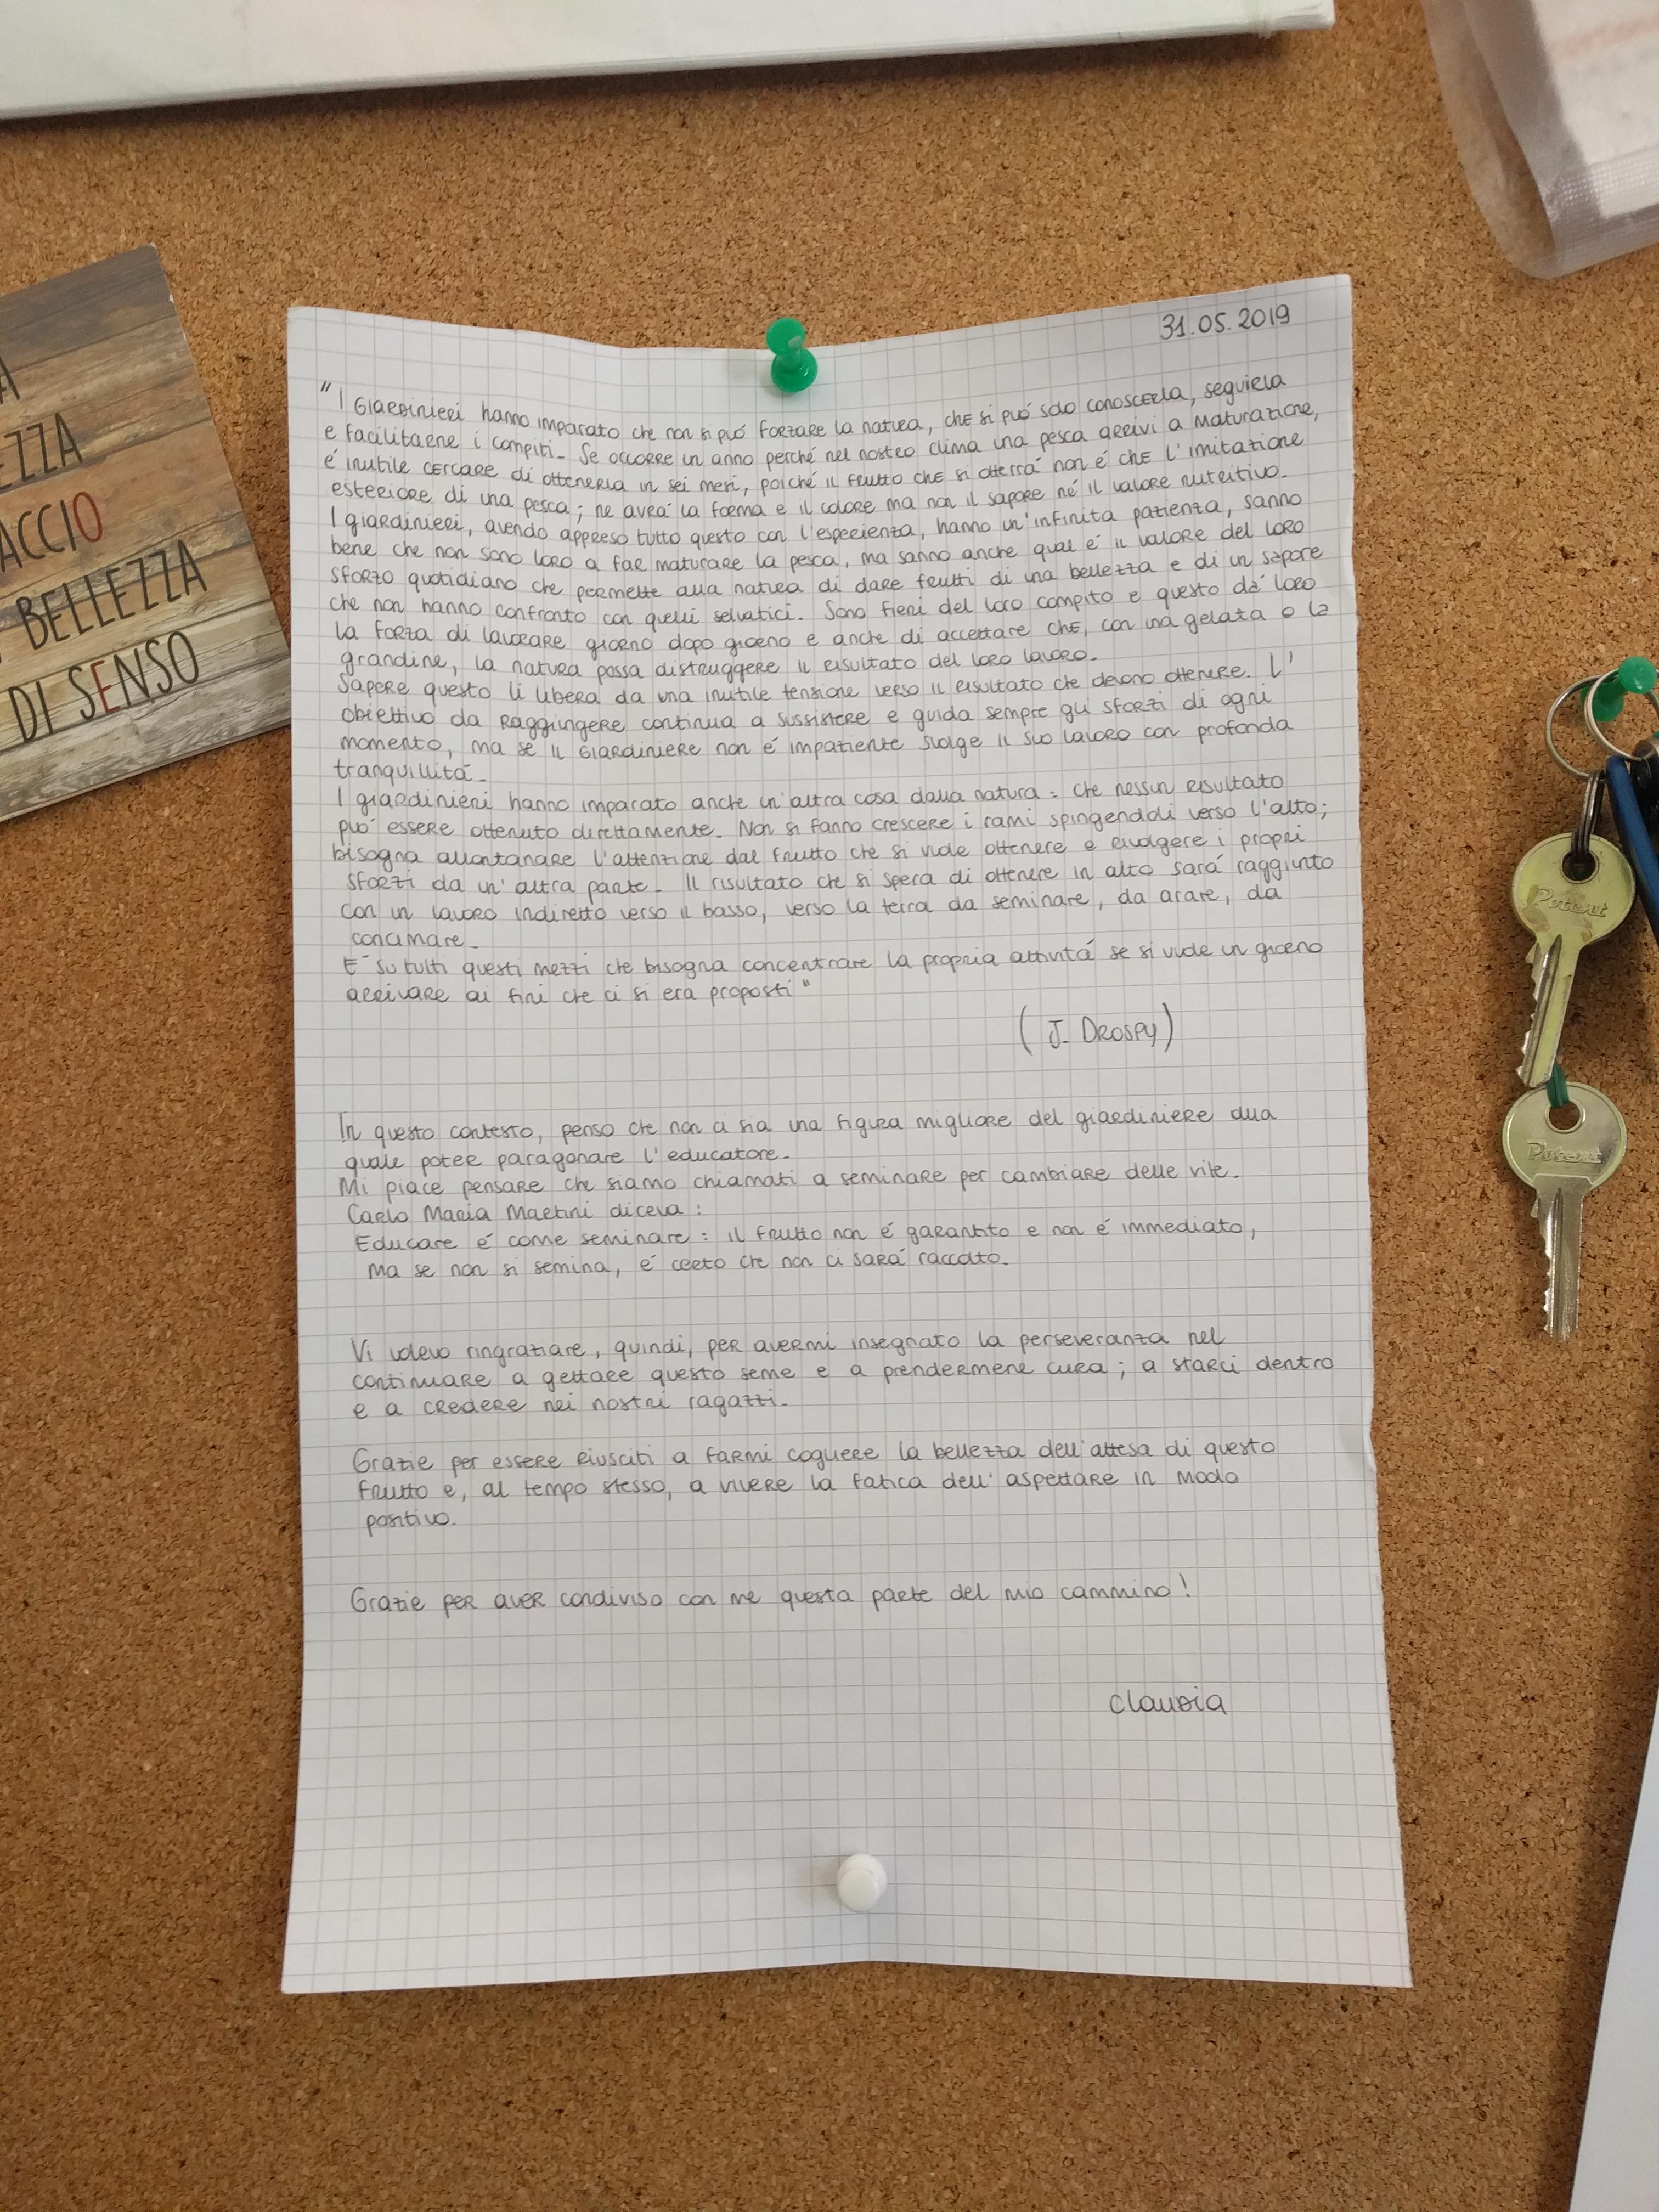 A
EZZA
ACCIO
BELLEZZA
DI SENSO
31.05.2019
"I GIARDINIERI hanno imparato che non si può forzare la natura, che si può solo conoscerla, seguirla
e facilitarne i compiti. Se occorre un anno perché nel nostro clima una pesca arrivi a maturazione,
é inutile cercare di ottenerla in sei mesi, poiché il frutto che si otterrá non é che l'imitazione
esteriore di una pesca; ne avrá la forma e il colore ma non il sapore né il valore nutritivo.
I giardinieri, avendo appreso tutto questo con l'esperienza, hanno un'infinita pazienza, sanno
bene che non sono loro a far maturare la pesca, ma sanno anche qual é il valore del loro
sforzo quotidiano che permette alla natura di dare frutti di una bellezza e di un sapore
che non hanno confronto con quelli selvatici. Sono fieri del loro compito e questo dá loro
la forza di lavorare giorno dopo giorno e anche di accettare che, con una gelata o la
grandine, la natura possa distruggere il risultato del loro lavoro.
Sapere questo li libera da una inutile tensione verso il risultato che devono ottenere. L'
obiettivo da raggiungere continua a sussistere e guida sempre gli sforzi di ogni
momento, ma se il giardiniere non é impaziente svolge il suo lavoro con profonda
tranquillitá.
I giardinieri hanno imparato anche un'altra cosa dalla natura: che nessun risultato
puó essere ottenuto direttamente. Non si fanno crescere i rami spingendoli verso l'alto;
bisogna allontanare l'attenzione dal frutto che si vuole ottenere e rivolgere i propri
sforzi da un'altra parte. Il risultato che si spera di ottenere in alto sará raggiunto
con un lavoro indiretto verso il basso, verso la terra da seminare, da arare, da
concimare.
E' su tutti questi mezzi che bisogna concentrare la propria attivitá se si vuole un giorno
arrivare ai fini che ci si era proposti"
(J. Drospy)
In questo contesto, penso che non ci sia una figura migliore del giardiniere alla
quale poter paragonare l'educatore.
Mi piace pensare che siamo chiamati a seminare per cambiare delle vite.
Carlo Maria Martini diceva:
Educare é come seminare: il frutto non é garantito e non é immediato,
ma se non si semina, é certo che non ci sará raccolto.
Vi volevo ringraziare, quindi, per avermi insegnato la perseveranza nel
continuare a gettare questo seme e a prendermene cura; a starci dentro
e a credere nei nostri ragazzi.
Grazie per essere riusciti a farmi cogliere la bellezza dell'attesa di questo
frutto e, al tempo stesso, a vivere la fatica dell'aspettare in modo
positivo.
Grazie per aver condiviso con me questa parte del mio cammino!
Claudia
Potent
Potent